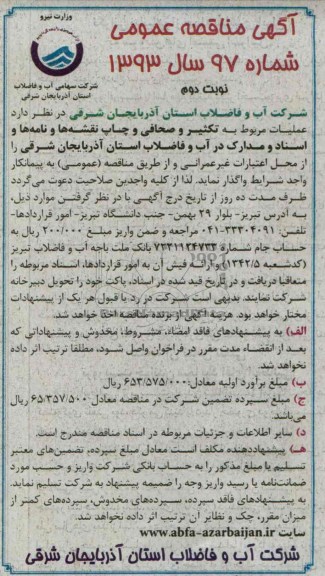 وزارت نیرو
شرکت سهامی آب و فاضلاب
استان آذربایجان شرقی
آگهی مناقصه عمومی
شماره ۹۷ سال ۱۳۹۳
نوبت دوم
شرکت آب و فاضلاب استان آذربایجان شرقی در نظر دارد
عملیات مربوط به تکثیر و صحافی و چاپ نقشه‌ها و نامه‌ها و
اسناد و مدارک در آب و فاضلاب استان آذربایجان شرقی را
از محل اعتبارات غیرعمرانی و از طریق مناقصه (عمومی) به پیمانکار
واجد شرایط واگذار نماید. لذا از کلیه واجدین صلاحیت دعوت می‌گردد
ظرف مدت ده روز از تاریخ درج آگهی با در نظر گرفتن موارد ذیل،
به آدرس تبریز- بلوار ۲۹ بهمن- جنب دانشگاه تبریز- امور قراردادها-
تلفن: ۳۳۳۰۴۰۹۱-۰۴۱ مراجعه و ضمن واریز مبلغ ۲۰۰/۰۰۰ ریال به
حساب جام شماره ۷۲۳۱۹۳۴۷۳۳ بانک ملت باجه آب و فاضلاب تبریز
(کدشعبه ۱۳۴۲/۵) و ارائه فیش آن به امور قراردادها، اسناد مربوطه را
متعاقبا دریافت و در تاریخ قید شده در اسناد، پاکت خود را تحویل دبیرخانه
شرکت نمایند. بدیهی است شرکت در رد یا قبول هر یک از پیشنهادات
مختار خواهد بود. هزینه آگهی از برنده مناقصه اخذ خواهد شد.
الف) به پیشنهادهای فاقد امضاء، مشروط، مخدوش و پیشنهاداتی که
بعد از انقضاء مدت مقرر در فراخوان واصل شود، مطلقا ترتیب اثر داده
نخواهد شد.
ب) مبلغ برآورد اولیه معادل: ۶۵۳/۵۷۵/۰۰۰ ریال
ج) مبلغ سپرده تضمین شرکت در مناقصه معادل ۶۵/۳۵۷/۵۰۰ ریال
می‌باشد.
د) سایر اطلاعات و جزئیات مربوطه در اسناد مناقصه مندرج است.
هـ) پیشنهاددهنده مکلف است معادل مبلغ مقرر، تضمین‌های معتبر
تسلیم یا مبلغ مذکور را به حساب بانکی شرکت واریز و حسب مورد
ضمانت‌نامه یا رسید واریز وجه را ضمیمه پیشنهاد به شرکت تسلیم نماید.
به پیشنهادهای فاقد سپرده، سپرده‌های مخدوش، سپرده‌های کمتر از
میزان مقرر، چک و نظایر آن ترتیب اثر داده نخواهد شد.
سایت www.abfa-azarbaijan.ir
شرکت آب و فاضلاب استان آذربایجان شرقی